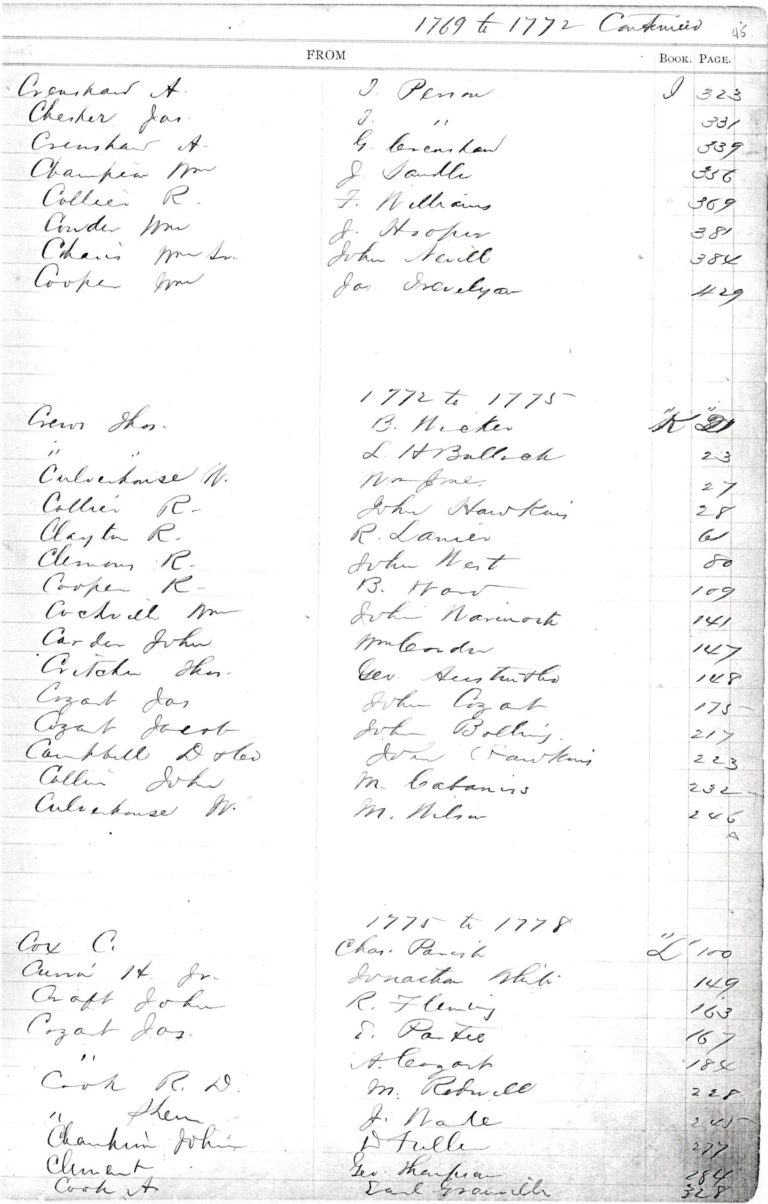 1769 to 1772 Continued 45
FROM BOOK. PAGE.
Crenshaw A. T. Person I 323
Chesher Jas. T. " 331
Crenshaw A. G. Crenshaw 339
Champion Wm J. Sandler 356
Collier R. F. Williams 369
Cowder Wm J. Hooper 381
Wm Sr. John Nevill 384
Cooper Wm Jas Trevelyan 429
1772 to 1775
Crews Thos. B. Wicker "K" 21
" " L. H Bullock 23
Culverhouse W. Wm 27
Collier R- John Hawkins 28
Clayton R. R. Lanier 61
Clemons R. John West 80
Cooper R- B. Ward 109
Wm John 141
Carder John Wm Corder 147
Critcher Thos. Geo 148
Cozart Jas John Cozart 175
Cozart Jacob John Bolling 217
Campbell D & Co John Hawkins 223
Collin John M. Cabaniss 232
Culverhouse W. M. Wilson 246
A
1775 to 1778
Cox C. Chas. Parish "L" 100
H. Jr. Jonathan White 149
Craft John R. Fleming 163
Cozart Jas. E. Partee 167
" A. Cozart 184
Cook R. D. M. Redwell 228
" Shem J. Wade 245
John D Fuller 277
Clement Geo. Thompson 284
Cook A Earl Granville 328